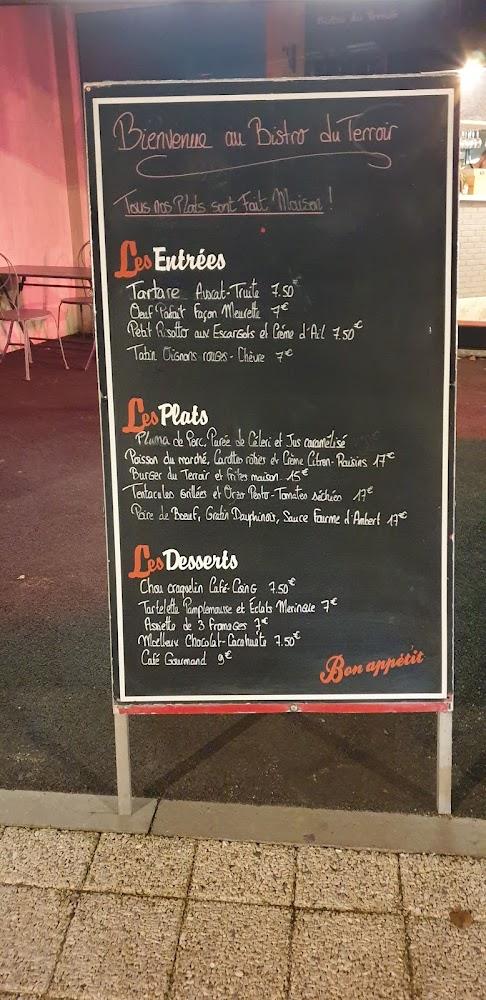 Bistro du Terroir
Bienvenue au Bistro du Terroir
Tous nos Plats sont Fait Maison !
Les Entrées
Tartare Avocat-Truite 7.50€
Oeuf Parfait Façon Meurette 7€
Petit Risotto aux Escargots et Crème d'Ail 7.50€
Tatin Oignons rouges - Chèvre 7€
Les Plats
Pluma de Porc, Purée de Céleri et Jus caramélisé
Poisson du marché, Carottes rôties et Crème Citron-Raisins 17€
Burger du Terroir et frites maison 15€
Tentacules Grillées et Orzo Pesto-Tomates séchées 17€
Poire de Boeuf, Gratin Dauphinois, Sauce Fourme d'Ambert 17€
Les Desserts
Chou craquelin Café-Coing 7.50€
Tartelette Pamplemousse et Eclats Meringue 7€
Assiette de 3 Fromages 7€
Moelleux Chocolat-Cacahuète 7.50€
Café Gourmand 9€
Bon appétit